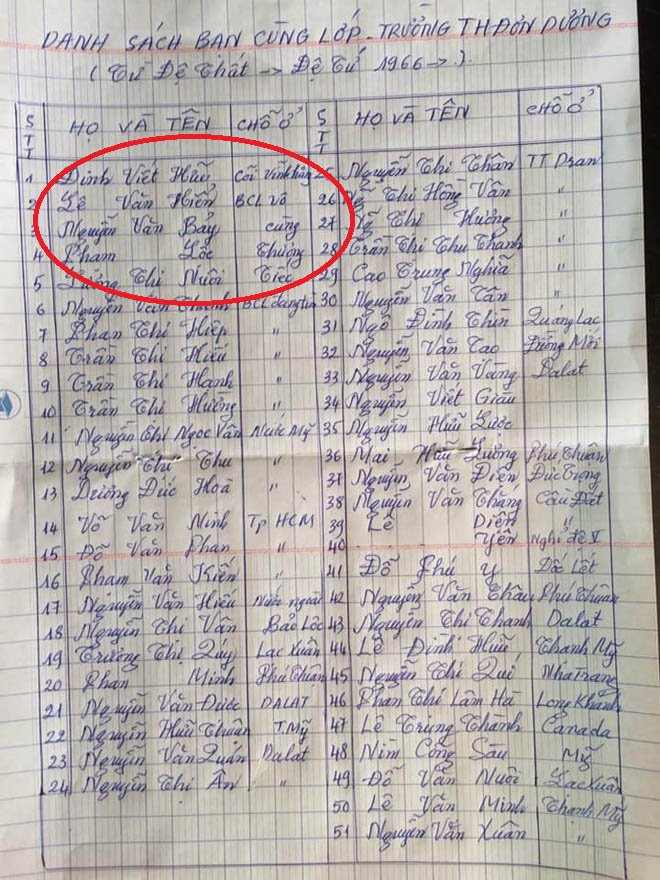 DANH SÁCH BẠN CÙNG LỚP - TRƯỜNG TH ĐƠN DƯƠNG
(Từ Đệ Thất -> Đệ Tứ 1966 -> ).
STT HỌ VÀ TÊN CHỖ Ở STT HỌ VÀ TÊN CHỖ Ở
1 Đinh Viết Hữu Cõi Vĩnh hằng 25 Nguyễn Thị Thân TT Dran
2 Lê Văn Hiển BCL Vô 26 Ng Thị Hồng Vân "
3 Nguyễn Văn Bảy cùng 27 Ng Thị Hường "
4 Phạm Lộc Thương 28 Trần Thị Thu Thanh "
5 Lương Thị Nuôi Tiếc 29 Cao Trung Nghĩa "
6 Nguyễn Văn Thanh BCL đang tìm 30 Nguyễn Văn Tân "
7 Phan Thị Hiệp " 31 Ngô Đình Thìn Quảng Lạc
8 Trần Thị Hiếu " 32 Nguyễn Văn Tao Đường Mới
9 Trần Thị Hạnh " 33 Nguyễn Văn Vàng Dalat
10 Trần Thị Hường " 34 Nguyễn Viết Giàu
11 Nguyễn Thị Ngọc Vân Nước Mỹ 35 Nguyễn Hữu Lược
12 Nguyễn Thị Thu " 36 Mai Hữu Lương Phú Thuận
13 Dương Đức Hoà " 37 Nguyễn Văn Diên Đức Trọng
14 Võ Văn Ninh Tp HCM 38 Nguyễn Văn Thăng Cầu Đất
15 Đỗ Văn Phan " 39 Lê Diên "
16 Phạm Văn Kiến " 40 Yên Nghỉ
17 Nguyễn Văn Hiếu Nước ngoài 41 Đỗ Phú Y Dốc Lết
18 Nguyễn Thị Vân Bảo Lộc 42 Nguyễn Văn Châu Phú Thuận
19 Trương Thị Quy Lạc Xuân 43 Nguyễn Thị Thanh Dalat
20 Phan Minh Phú Thuận 44 Lê Đình Hữu Thạnh Mỹ
21 Nguyễn Văn Được DALAT 45 Nguyễn Thị Quí Nha Trang
22 Nguyễn Hữu Thuận T.Mỹ 46 Phan Thị Lâm Hà Long Khánh
23 Nguyễn Văn Quán Dalat 47 Lê Trung Thành Canada
24 Nguyễn Thị Ân " 48 Nìm Công Sáu Mỹ
49 Đỗ Văn Nuôi Lạc Xuân
50 Lê Văn Minh Thạnh Mỹ
51 Nguyễn Văn Xuân "